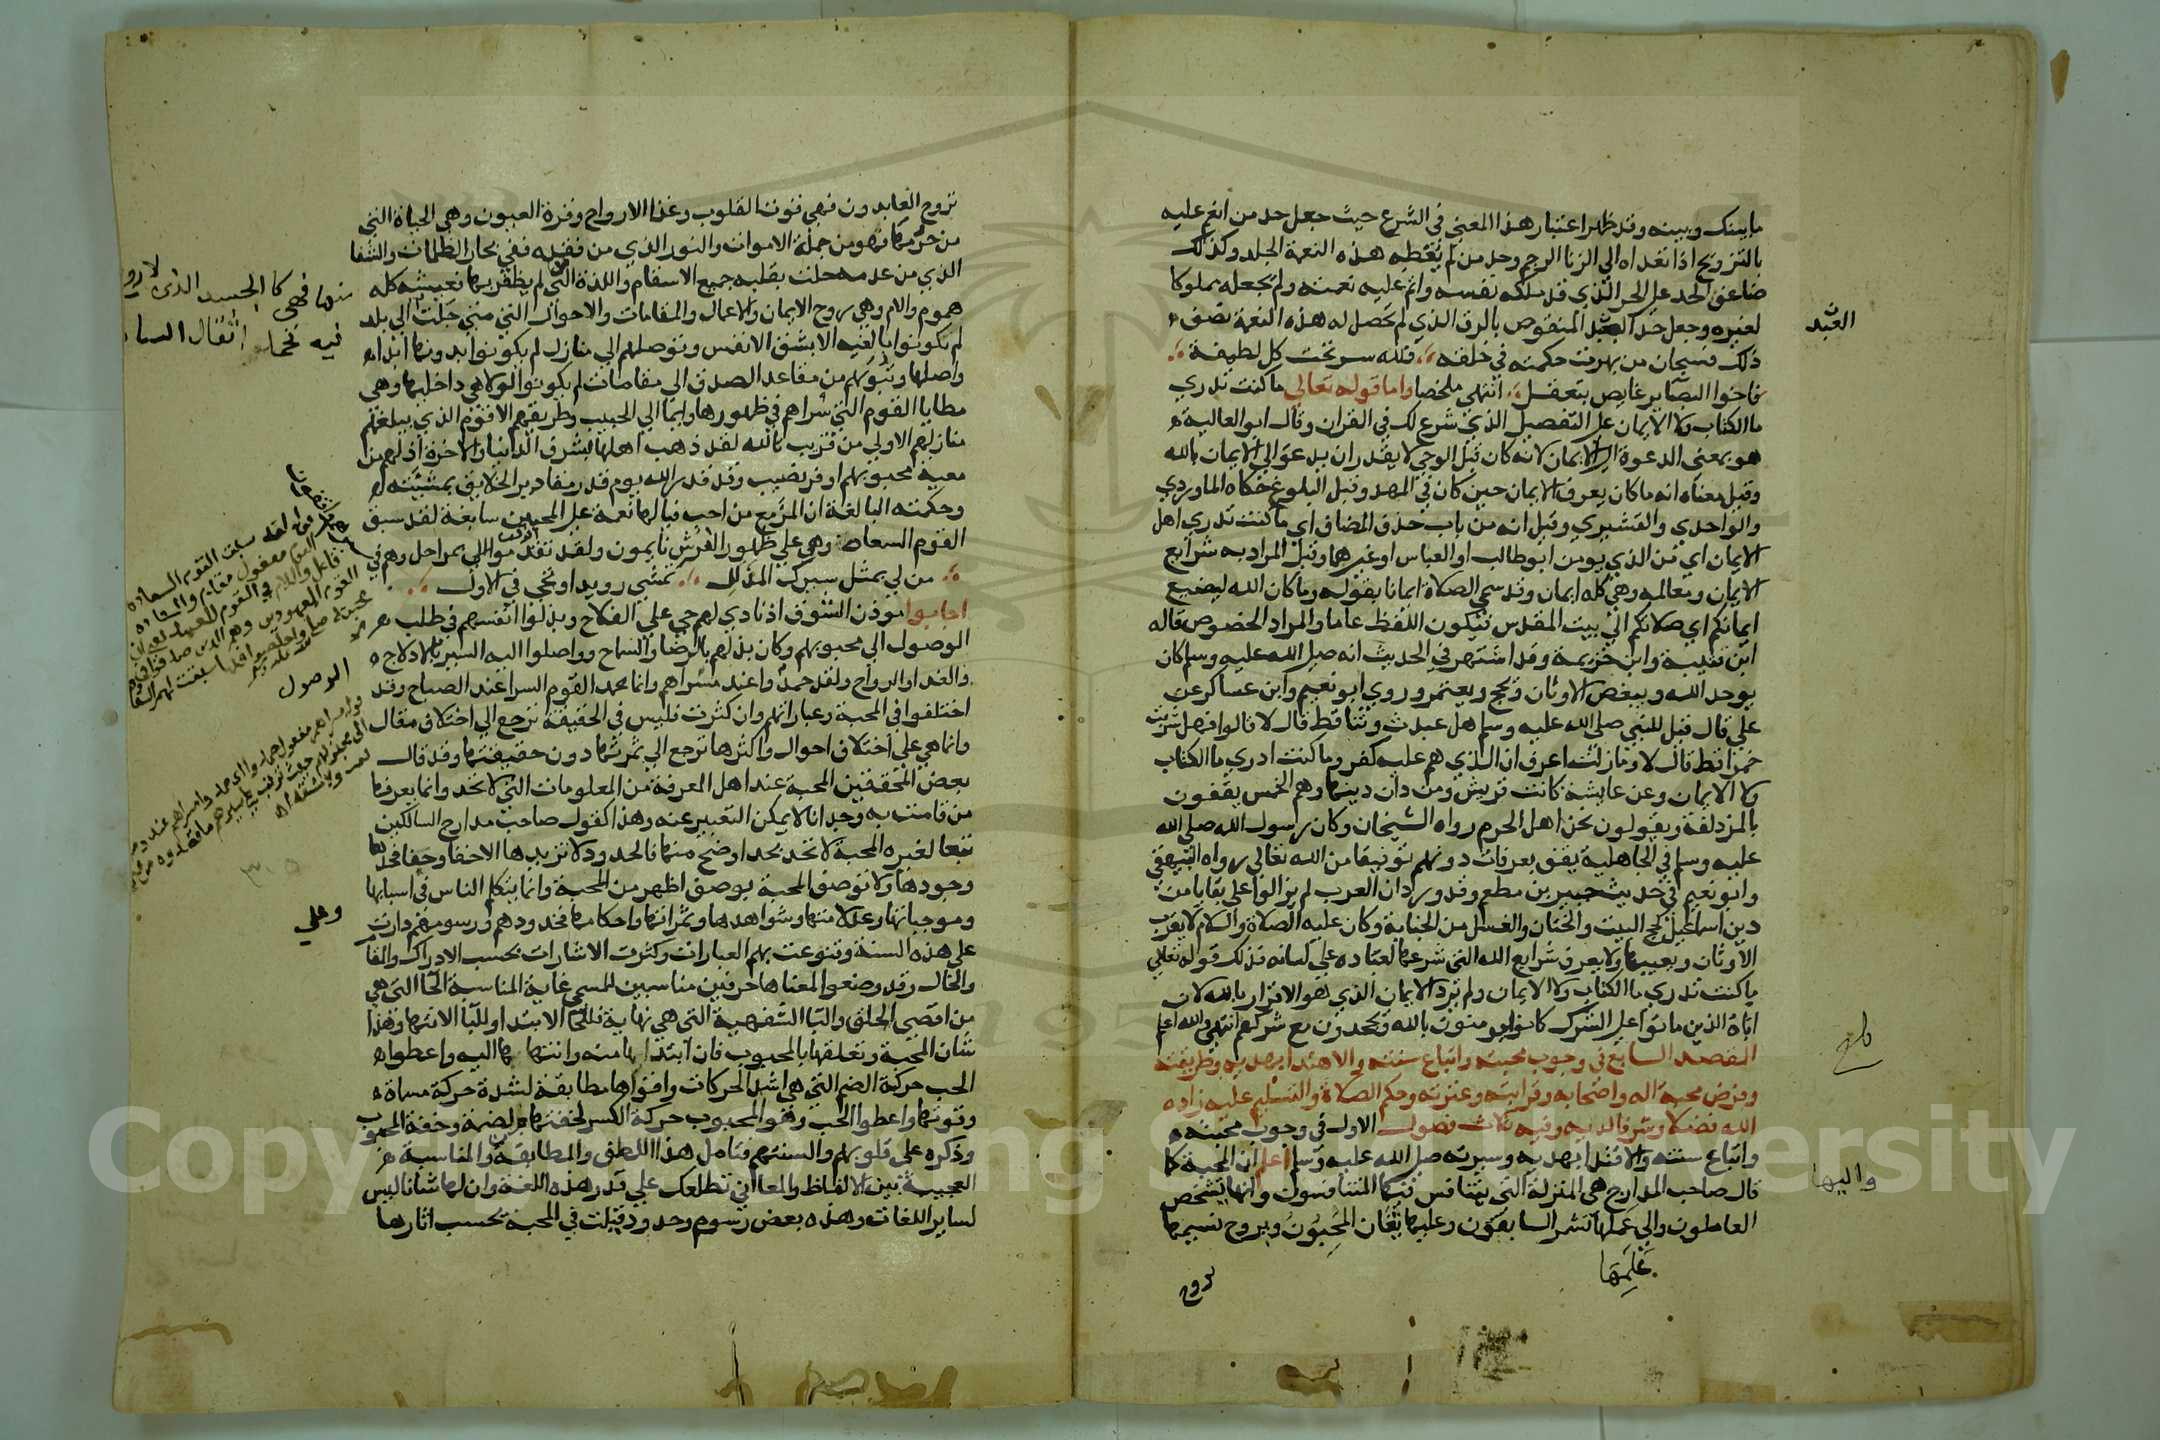 ما بينك وبينه وقد ظهر اعتبار هذا المعني في الشرع حيث جعل حد من انعم عليه
بالتزويج اذا تعداه الي الزنا الرجم وحد من لم يعطه هذه النعمة الجلد وكذلك
ضاعف الحد علي الحر الذي قد ملكه نفسه واتم عليه نعمته ولم يجعله مملوكا
لغيره وجعل حد العبد المنقوص بالرق الذي لم يحصل له هذه النعمة نصف
العبد
ذلك فسبحان من بهرت حكمته في خلقه فلله سر تحت كل لطيفة
فاخوا البصاير غايص يتعقل انتهي ملخصا واما قوله تعالي ما كنت تدري
ما الكتاب ولا الايمان علي التفصيل الذي شرع لك في القران وقال ابو العالية
هو بمعني الدعوة الي الايمان لانه كان قبل الوحي لا يقدر ان يدعوا الي الايمان بالله
وقيل معناه انه ما كان يعرف الايمان حين كان في المهد وقبل البلوغ حكاه الماوردي
والواحدي والقشيري وقيل انه من باب حذف المضاف اي ما كنت تدري اهل
الايمان اي من الذي يومن ابو طالب او العباس او غيرهما وقيل المراد به شرايع
الايمان ومعالمه وهي كله ايمان وقد سمي الصلاة ايمانا بقوله وما كان الله ليضيع
ايمانكم اي صلاتكم الي بيت المقدس فيكون اللفظ عاما والمراد الخصوص قاله
ابن قتيبة وابن خزيمة وقد اشتهر في الحديث انه صلي الله عليه وسلم كان
يوحد الله ويبغض الاوثان ويحج ويعتمر وروي ابو نعيم وابن عساكر عن
علي قال قيل للنبي صلي الله عليه وسلم هل عبدت وثنا قط قال لا قالوا فهل شربت
خمرا قط قال لا وما زلت اعرف ان الذي هم عليه كفر وما كنت ادري ما الكتاب
ولا الايمان وعن عايشة كانت قريش ومن دان دينها وهم الحمس يقفون
بالمزدلفة ويقولون نحن اهل الحرم رواه الشيخان وكان رسول الله صلي الله
عليه وسلم في الجاهلية يقف بعرفات دونهم توفيقا من الله تعالي رواه البيهقي
وابو نعيم في حديث جبير بن مطعم وقد ورد ان العرب لم يزالوا علي بقايا من
دين اسماعيل كحج البيت والختان والغسل من الجنابة وكان عليه الصلاة والسلام لا يقرب
الاوثان ويعيبها ولا يعرف شرايع الله التي شرعها لعباده علي لسانه فذلك قوله تعالي
ما كنت تدري ما الكتاب ولا الايمان ولم يرد الايمان الذي هو الاقرار بالله لان
اباه الذين ماتوا علي الشرك كانوا يومنون بالله ويحجون مع شركهم انتهي والله اعلم
المقصد السابع في وجوب محبته واتباع سنته والاهتدا بهديه وطريقته
وفرض محبة اله واصحابه وقرابته وعترته وحكم الصلاة والتسليم عليه زاده
الله فضلا وشرفا لديه وفيه ثلاث فصول الاول في وجوب محبته
واتباع سنته والاقتدا بهديه وسيرته صلي الله عليه وسلم اعلم ان المحبة كما
قال صاحب المدارج هي المنزلة التي يتنافس فيها المتنافسون وانها يشخص
واليها
العاملون والي عملها شمر السابقون وعليها تفان المحبون وبروح نسيمها
علمها
تروح
تروح العابدون فهي قوت القلوب وغذا الارواح وقرة العيون وهي الحياة التي
من حرمها فهو من جملة الاموات والنور الذي من فقده ففي بحار الظلمات والشفا
الذي من عدمه حلت بقلبه جميع الاسقام واللذة التي من لم يظفر بها فعيشه كله
هموم والام وهي روح الايمان والاعمال والمقامات والاحوال التي متي خلت
منها فهي كالجسد الذي لا روح
فيه تحمل اثقال الساير
الي بلد
لم يكونوا بالغيه الا بشق الانفس وتوصلهم الي منازل لم يكونوا بدونها ابدا
واصلها وتبوئهم من مقاعد الصدق الي مقامات لم يكونوا لولا هي داخليها وهي
مطايا القوم التي سراهم في ظهورها دايما الي الحبيب وطريقهم الاقوم الذي يبلغهم
منازلهم الاولي من قريب تالله لقد ذهب اهلها بشرف الدنيا والاخرة اذ لهم من
معية محبوبهم اوفر نصيب وقد قدر الله يوم قدر مقادير الخلايق بمشيته
وحكمته البالغة ان المرء مع من احب فيالها نعمة علي المحبين سابغة لقد سبق
القوم السعاة وهي علي ظهور الفرش نايمون ولقد تقدموا الركب بمراحل وهم في
من لي بمثل سيرك المذلل تمشي رويدا وتجي في الاول
اجابوا موذن الشوق اذ نادي لهم حي علي الفلاح وبذلوا انفسهم في طلب
الوصول
الوصول الي محبوبهم وكان بذلهم بالرضا والسماح وواصلوا اليه السير بالادلاج
والغدا والرواح ولقد حمدوا عند مسراهم وانما يحمد القوم السرا عند الصباح وقد
اختلفوا في المحبة وعباراتهم وان كثرت فليس في الحقيقة ترجع الي اختلاف مقال
وانما هي علي اختلاف احوال واكثرها ترجع الي ثمرتها دون حقيقتها وقد قال
بعض المحققين المحبة عند اهل المعرفة من المعلومات التي لا تحد وانما يعرفها
من قامت به وجدانا لا يمكن التعبير عنه وهذا كقول صاحب مدارج السالكين
تبعا لغيره المحبة لا تحد بحد اوضح منها فالحدود لا تزيدها الا خفا وجفا فحدها
وجودها ولا توصف المحبة بوصف اظهر من المحبة وانما يتكلم الناس في اسبابها
وموجباتها وعلاماتها وشواهدها وثمراتها واحكامها فحدودهم ورسومهم دارت
وعلي
علي هذه السنة وتنوعت بهم العبارات وكثرت الاشارات بحسب الادراك والمقا
والحال وقد وضعوا لمعناها حرفين مناسبين للمسمي غاية المناسبة الحا التي هي
من اقصي الحلق والبا الشفهية التي هي نهايته فللحا الابتدا وللبا الانتها وهذا
شان المحبة وتعلقها بالمحبوب فان ابتداها منه وانتهاها اليه واعطوا
الحب حركة الضم التي هي اشد الحركات واقواها مطابقة لشدة حركة مسماه
وقوتها واعطوا الحب وهو المحبوب حركة الكسر لخفتها من الضمة وخفة المحبوب
وذكره علي قلوبهم والسنتهم فتامل هذا اللطف والمطابقة والمناسبة
العجيبة بين الالفاظ والمعاني تطلعك علي قدر هذه اللغة وان لها شانا ليس
لساير اللغات وهذه بعض رسوم وحدود قيلت في المحبة بحسب اثارها
Copy ng S ersity